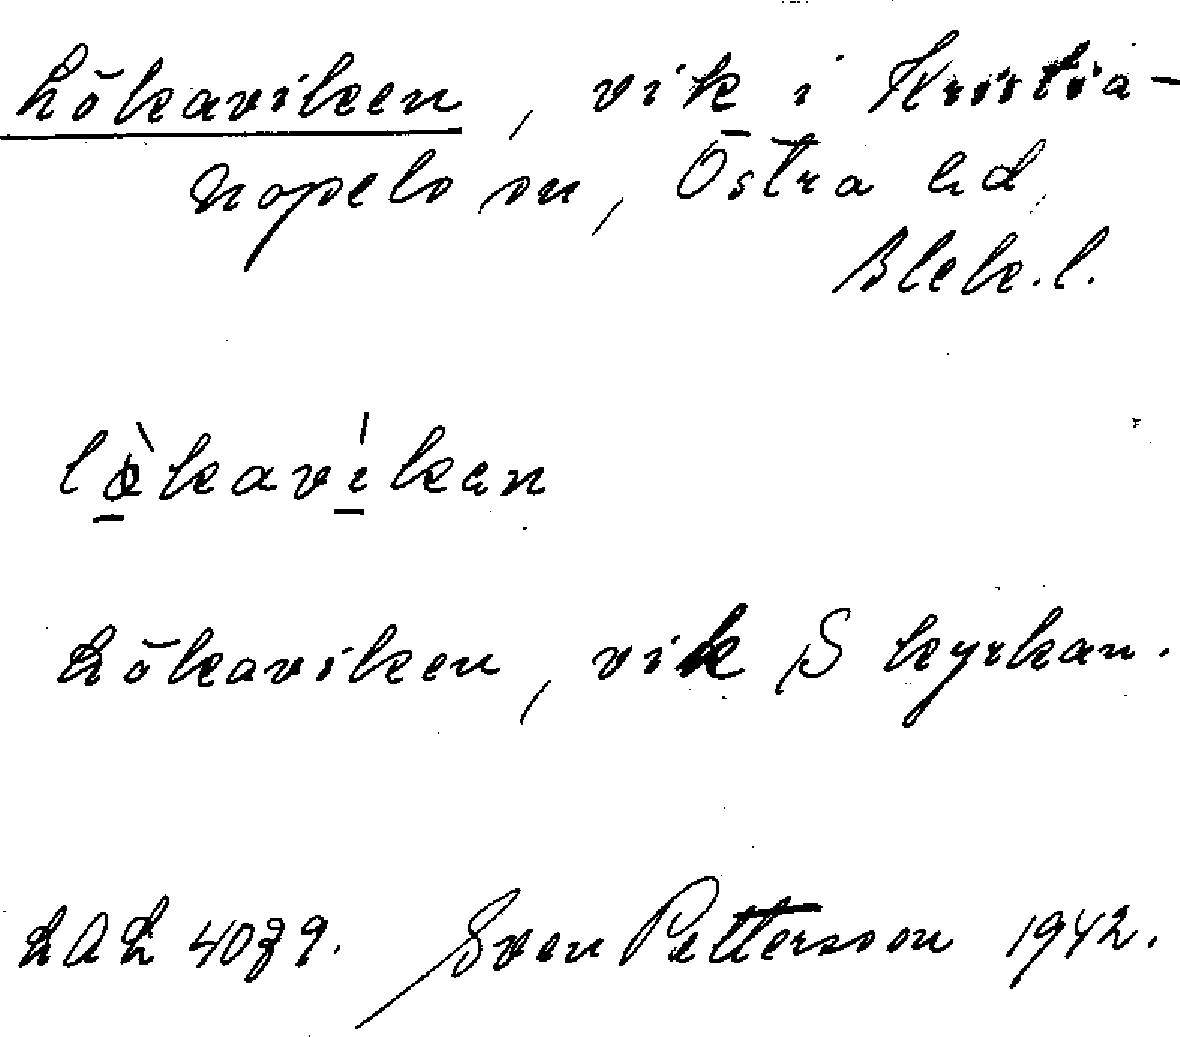 Lökaviken, vik i Kristia-
nopels sn, Östra hd,
Blek.l.
lø̀kavíkən
Lökaviken, vik S kyrkan.
LAL 4079. Sven Pettersson 1942.